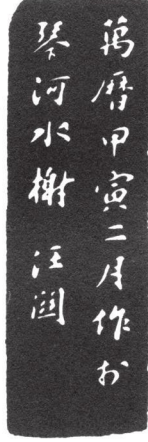 萬曆甲寅二月作於
琴河水榭 汪關